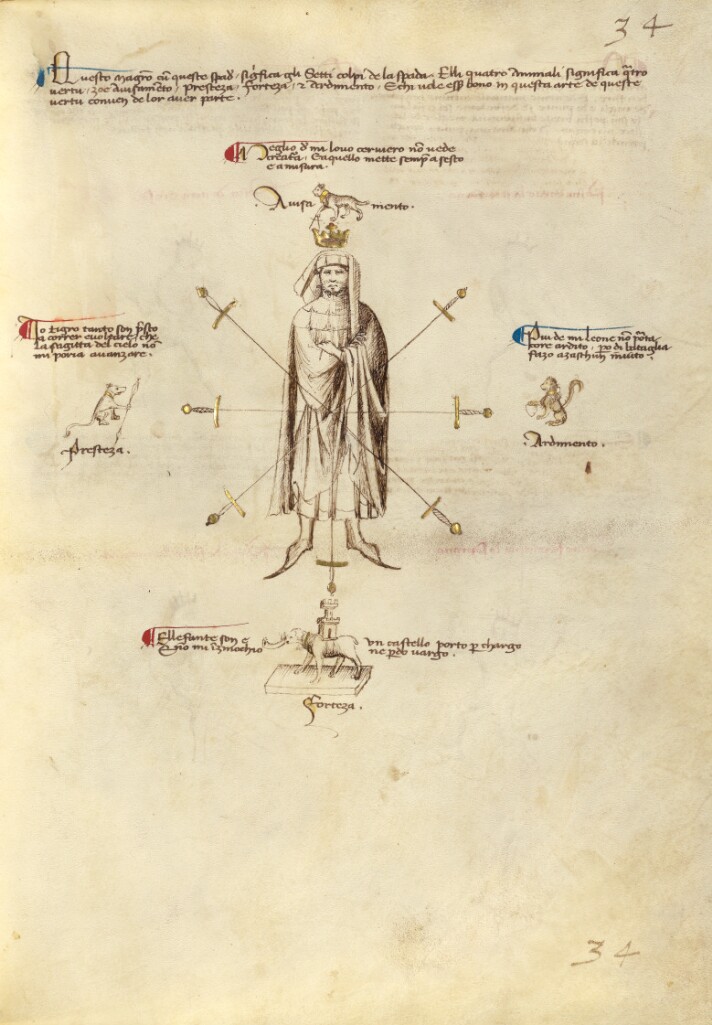 34
Questo Magro cu queste spade significa gli Setti colpi de la spada. Elli quatro Animali significa qtro
vertu, zoe Avisameto, Presteza, Forteza, & Ardimento. E chi vole ess bono in questa arte de queste
vertu conven de lor aver parte.
Meglio d mi lovo cerviero no vede
creatura, E aquello mette semp a sesto
e a misura.
Avisa mento.
Io tigro tanto son psto
a correr e voltare, che
la sagitta del cielo no
mi poria avanzare.
Piu de mi Leone no porta
core ardito, po di bataglia
fazo a zaschun invito.
Presteza.
Ardimento.
Ellefante son e un castello porto p chargo
E no mi inzenochio ne pdo vargo.
Forteza.
34